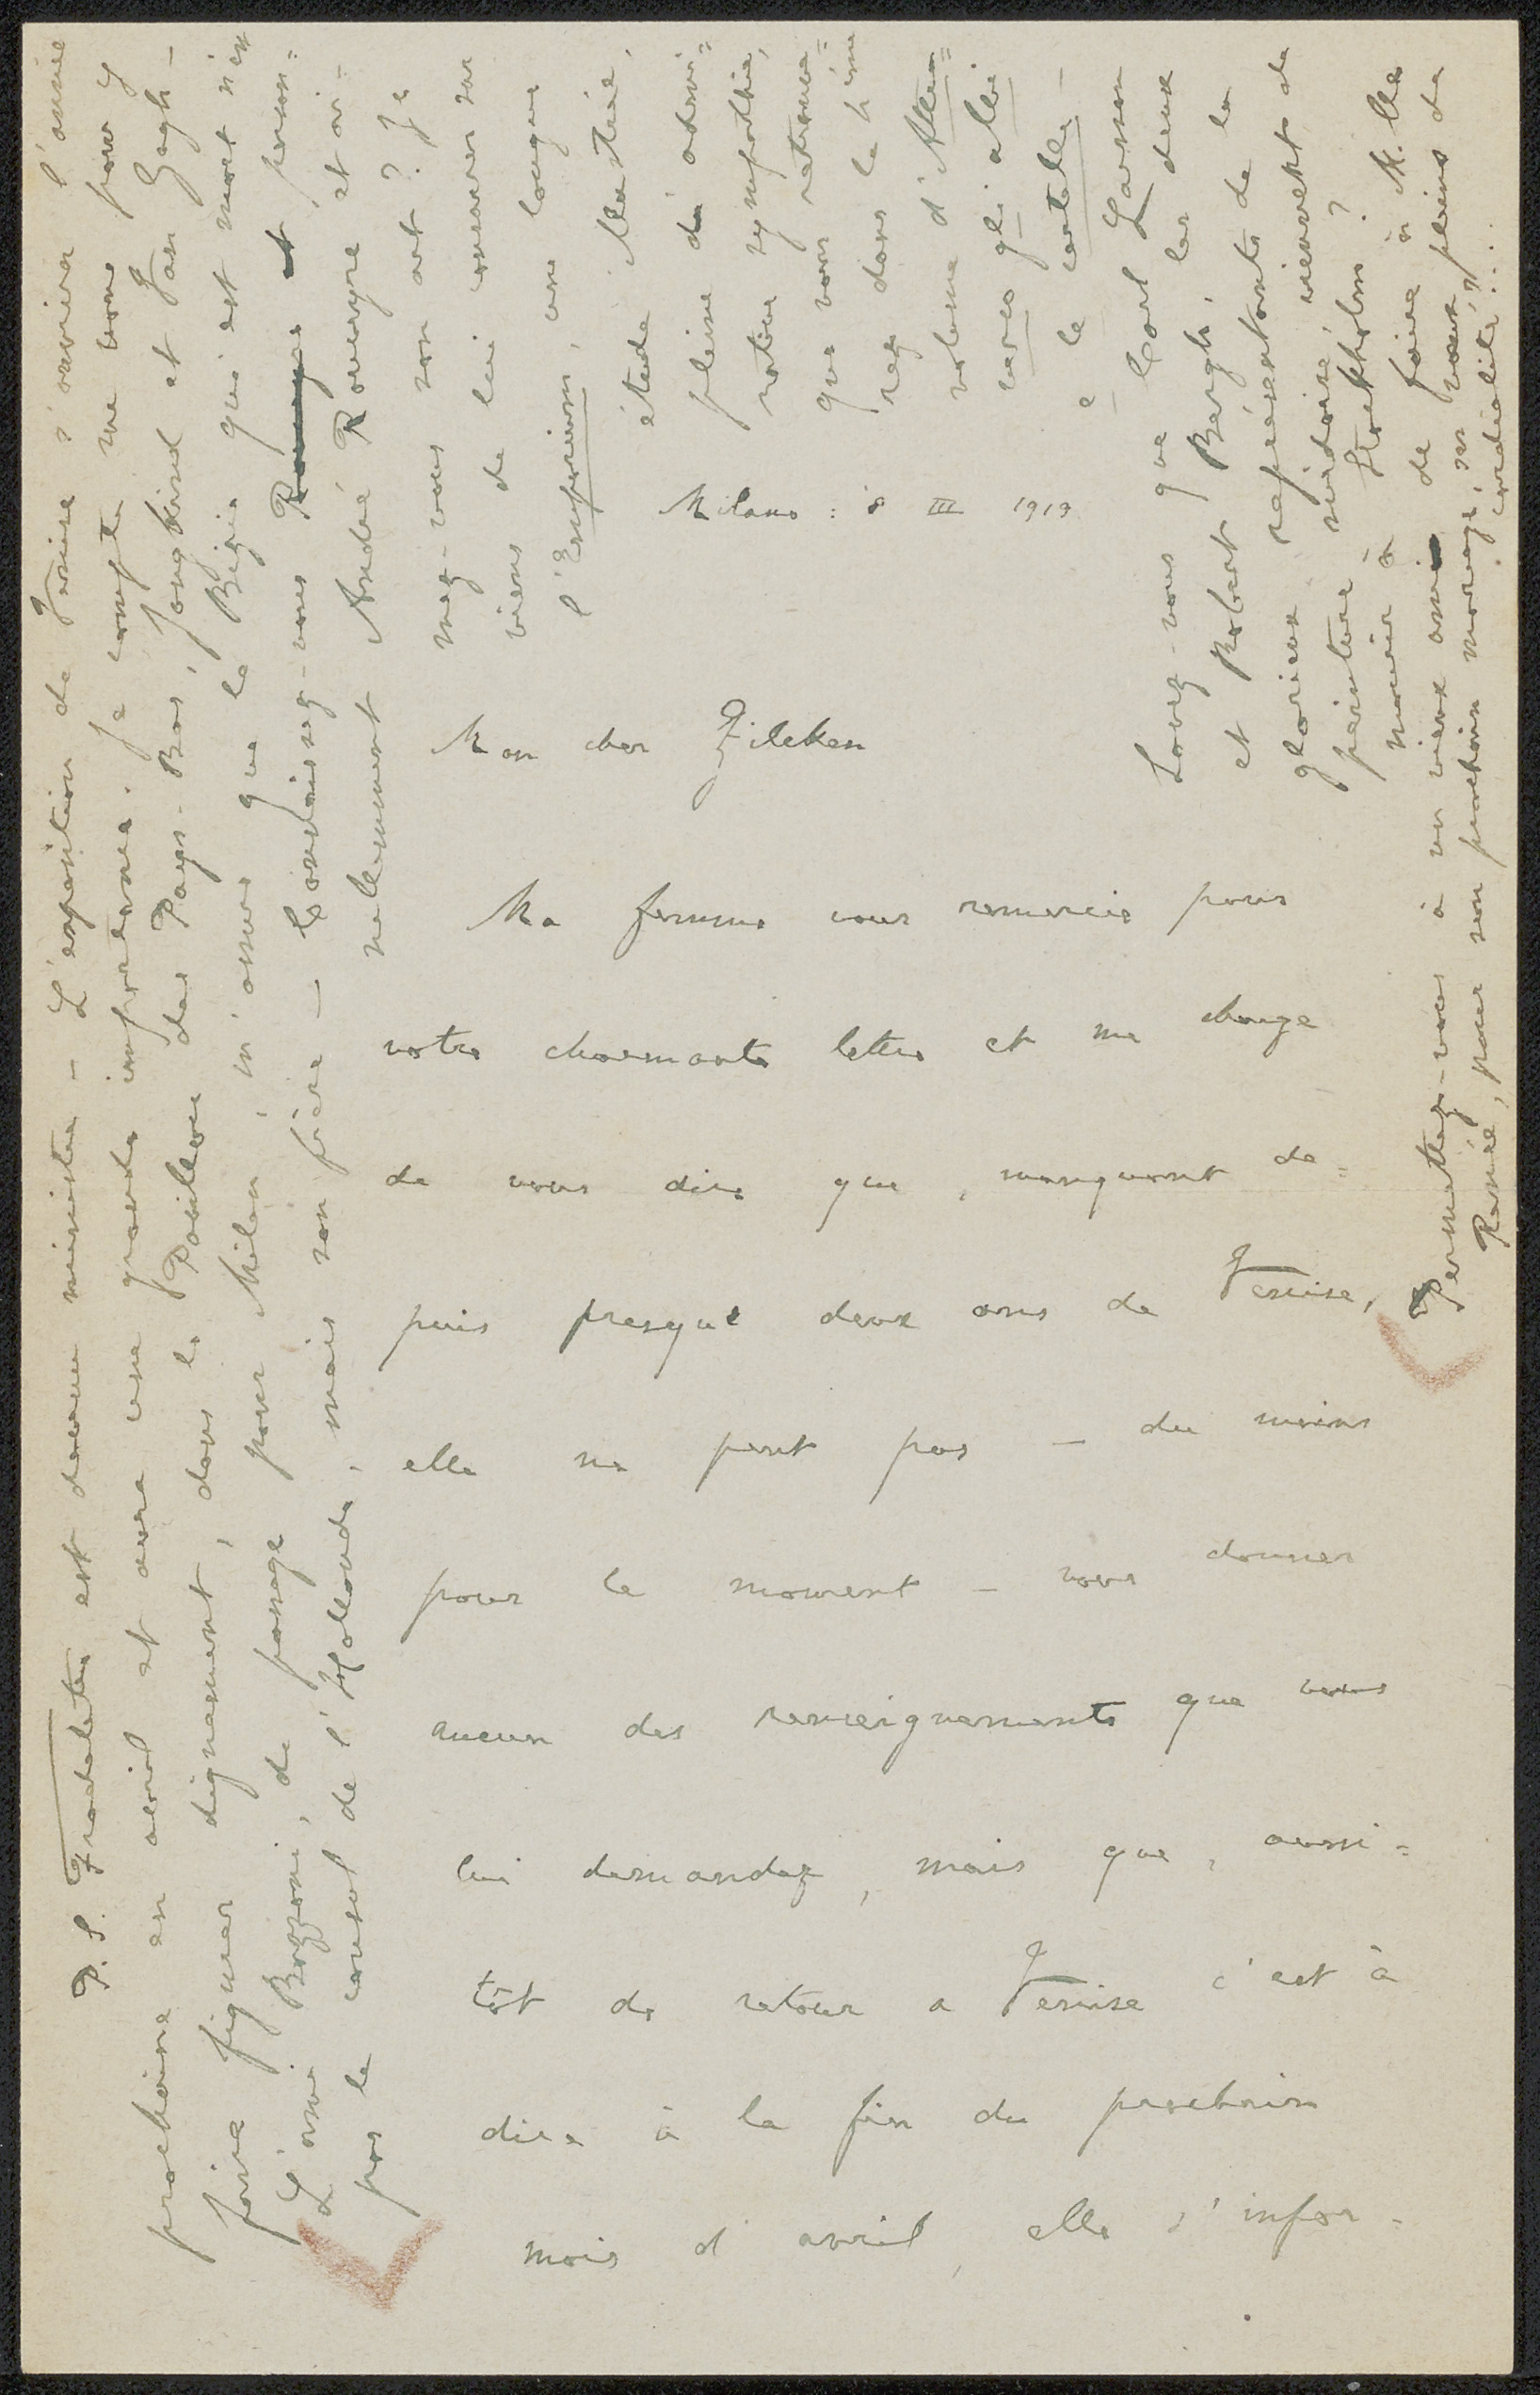 Milano : 8 III 1919
Mon cher Zilcken
Ma femme vous remercie pour
votre charmante lettre et me charge
de vous dire que, manquant de=
puis presque deux ans de Venise,
elle ne peut pas – du moins
pour le moment – vous donner
aucun des renseignements que vous
lui demandez, mais que, aussi=
tôt de retour a Venise c'est à
dire à la fin du prochain
mois d'avril, elle s'infor-
P.S. Fradeletto est devenu ministre – L'exposition de Venise s'ouvrira l'année
prochaine en avril et aura une grande importance. Je compte me vous pour y
faire figurer dignement, dans le Pavillon des Pays-Bas, Jongkind et Van Gogh –
L'ami Bozzoni, de passage pour Milan, m'assure que le Bizio qui est mort n'est
pas le consul de l'Hollande, mais son frère – Connaissez-vous et person=
nelement André Rouveyre et ai-
mez-vous son art ? Je
viens de lui consacrer sur
l'Emporium, une longue
étude illustrée,
pleine d'admi=
rative sympathie,
que vous retrouve=
rez dans le
volume d'Atten=
verso gli albi
e le cartelle –
Savez-vous que Carl Larsson
et Robert Bergh, les deux
glorieux représentants de la
peinture suédoise, viennent de
mourir à Stockholm ?
Permettez-vous à un vieux ami de faire à M.lle
Renée, pour son prochain mariage, ses voeux pleins de
cordialité...